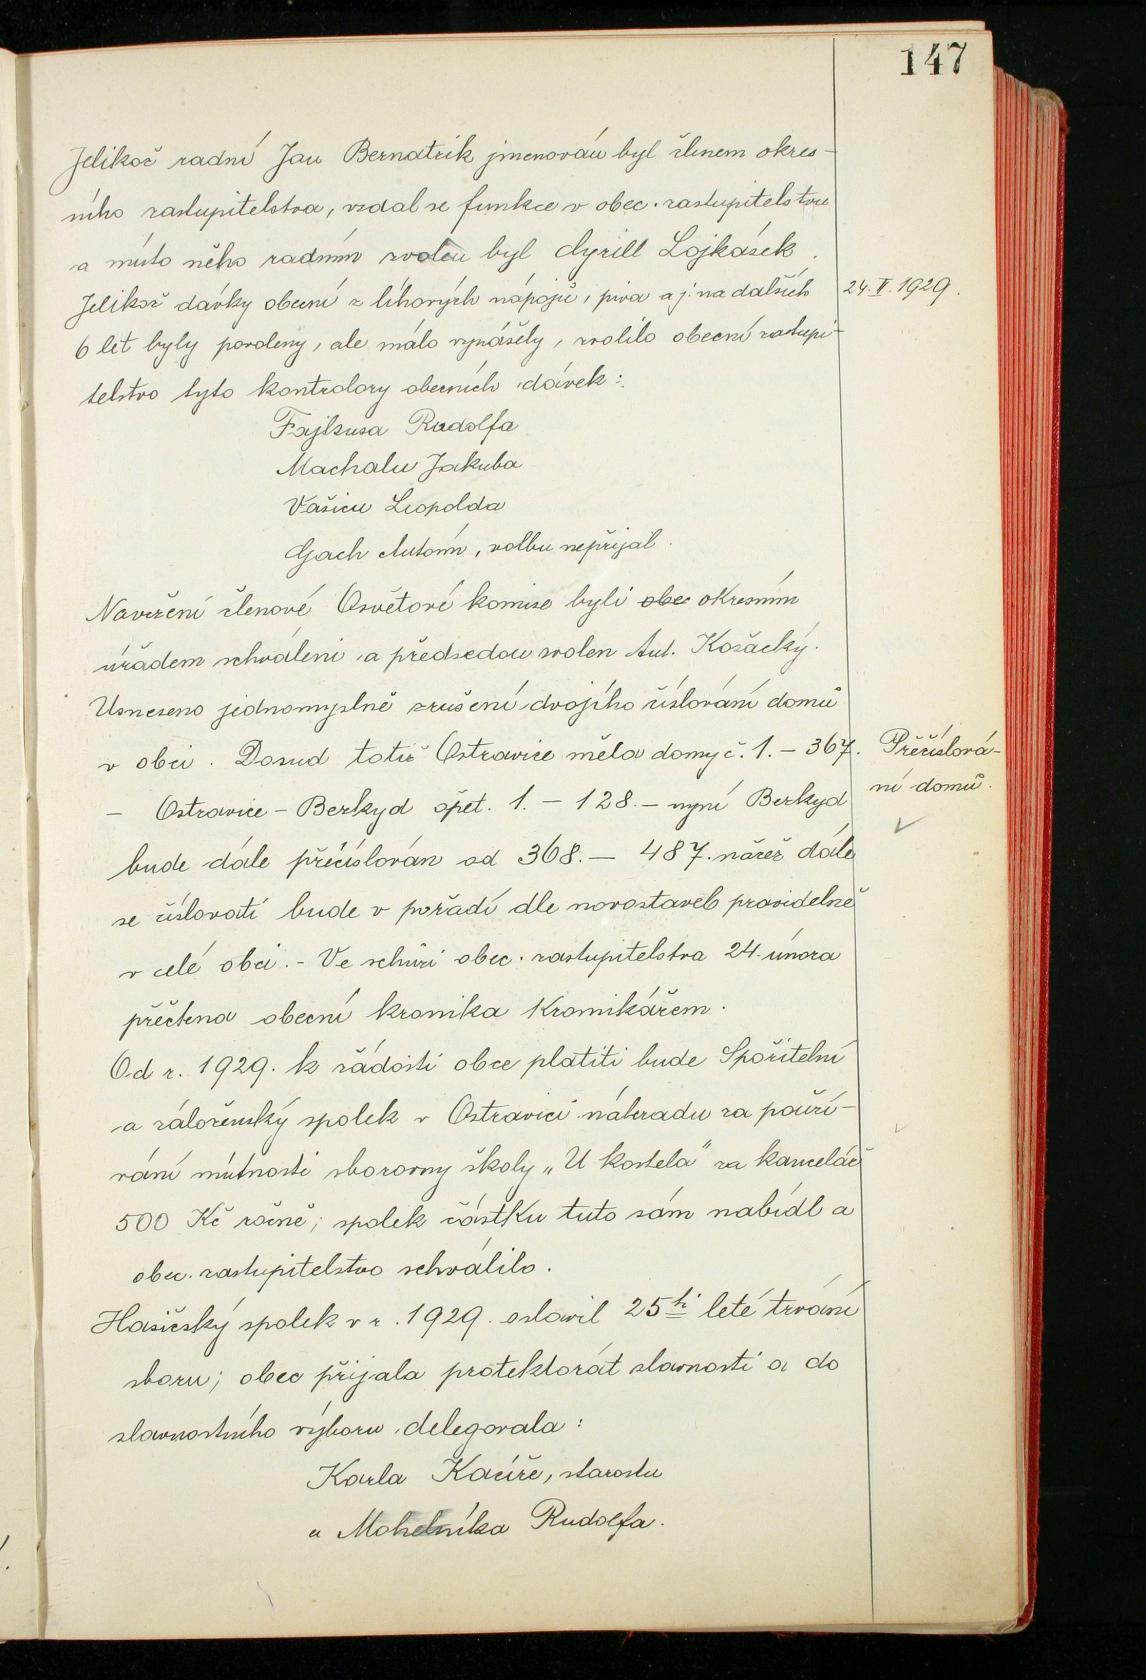 147
Jelikož radní Jan Bernatzik jmenován byl členem okres-
ního zastupitelstva, vzdal se funkce v obec. zastupitelstvu
a místo něho radním zvolen byl Cyrill Lojkásek.
Jelikož dávky obecní z líhových nápojů, piva a j. na dalších
24. II. 1929.
6 let byly povoleny, ale málo vynášely, zvolilo obecní zastupi-
telstvo tyto kontrolory obecních dávek:
Fajkusa Rudolfa
Machalu Jakuba
Vašicu Leopolda
Gach Antonín, volbu nepřijal.
Navržení členové Osvětové komise byli obec okresním
úřadem schváleni a předsedou zvolen Ant. Kozácký.
Usneseno jednomyslně zrušení dvojího číslování domů
v obci. Dosud totiž Ostravice měla domy č. 1. – 367.
Přečíslová-
ní domů.
– Ostravice – Berkyd opět. 1. – 128. – nyní Berkyd
bude dále přečíslován od 368. – 487. načež dále
se číslovati bude v pořadí dle novostaveb pravidelně
v celé obci. - Ve schůzi obec. zastupitelstva 24. února
přečtena obecní kronika kronikářem.
Od r. 1929. k žádosti obce platiti bude Spořitelní
a záloženský spolek v Ostravici náhradu za použí-
vání místnosti sborovny školy „U kostela" za kancelář
500 Kč ročně; spolek částku tuto sám nabídl a
obec. zastupitelstvo schválilo.
Hasičský spolek v r. 1929. oslavil 25ti leté trvání
sboru; obec přijala protektorát slavnosti a do
slavnostního výboru delegovala:
Karla Kacíře, starostu
a Mohelníka Rudolfa.